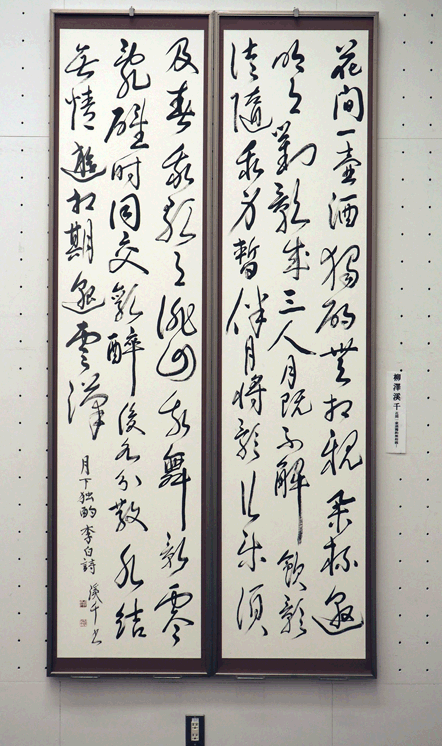 花間一壺酒獨酌無相親舉杯邀
明月對影成三人月既不解飲影
徒隨我身暫伴月將影行樂須
及春我歌月徘徊我舞影零
亂醒時同交歡醉後各分散永結
無情遊相期邈雲漢
月下独酌 李白詩 溪千書
柳澤溪千